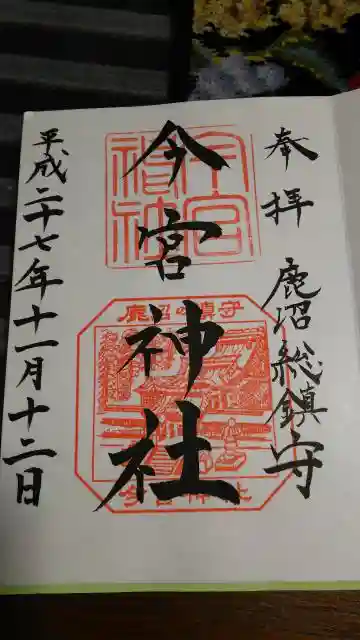 奉拝
鹿沼総鎮守
今宮神社
今宮神社
鹿沼の鎮守
今宮神社
平成二十七年十一月十二日